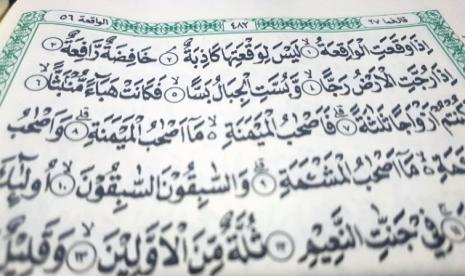 الواقعة ٥٦ ٤٨٢ قالفما ٢٧
اِذَا وَقَعَتِ الْوَاقِعَةُ ۙ۝١ لَيْسَ لِوَقْعَتِهَا كَاذِبَةٌ ۘ۝٢ خَافِضَةٌ رَّافِعَةٌ ۙ۝٣
اِذَا رُجَّتِ الْاَرْضُ رَجًّا ۙ۝٤ وَّبُسَّتِ الْجِبَالُ بَسًّا ۙ۝٥ فَكَانَتْ هَبَاۤءً مُّنْۢبَثًّا ۙ۝٦
كُنْتُمْ اَزْوَاجًا ثَلٰثَةً ۗ۝٧ فَاَصْحٰبُ الْمَيْمَنَةِ ەۙ مَآ اَصْحٰبُ الْمَيْمَنَةِ ۗ۝٨ وَاَصْحٰبُ
مَآ اَصْحٰبُ الْمَشْـَٔمَةِ ۗ۝٩ وَالسّٰبِقُوْنَ السّٰبِقُوْنَ ۙ۝١٠ اُولٰۤىِٕكَ
فِيْ جَنّٰتِ النَّعِيْمِ ۝١٢ ثُلَّةٌ مِّنَ الْاَوَّلِيْنَ ۙ۝١٣ وَقَلِيْلٌ